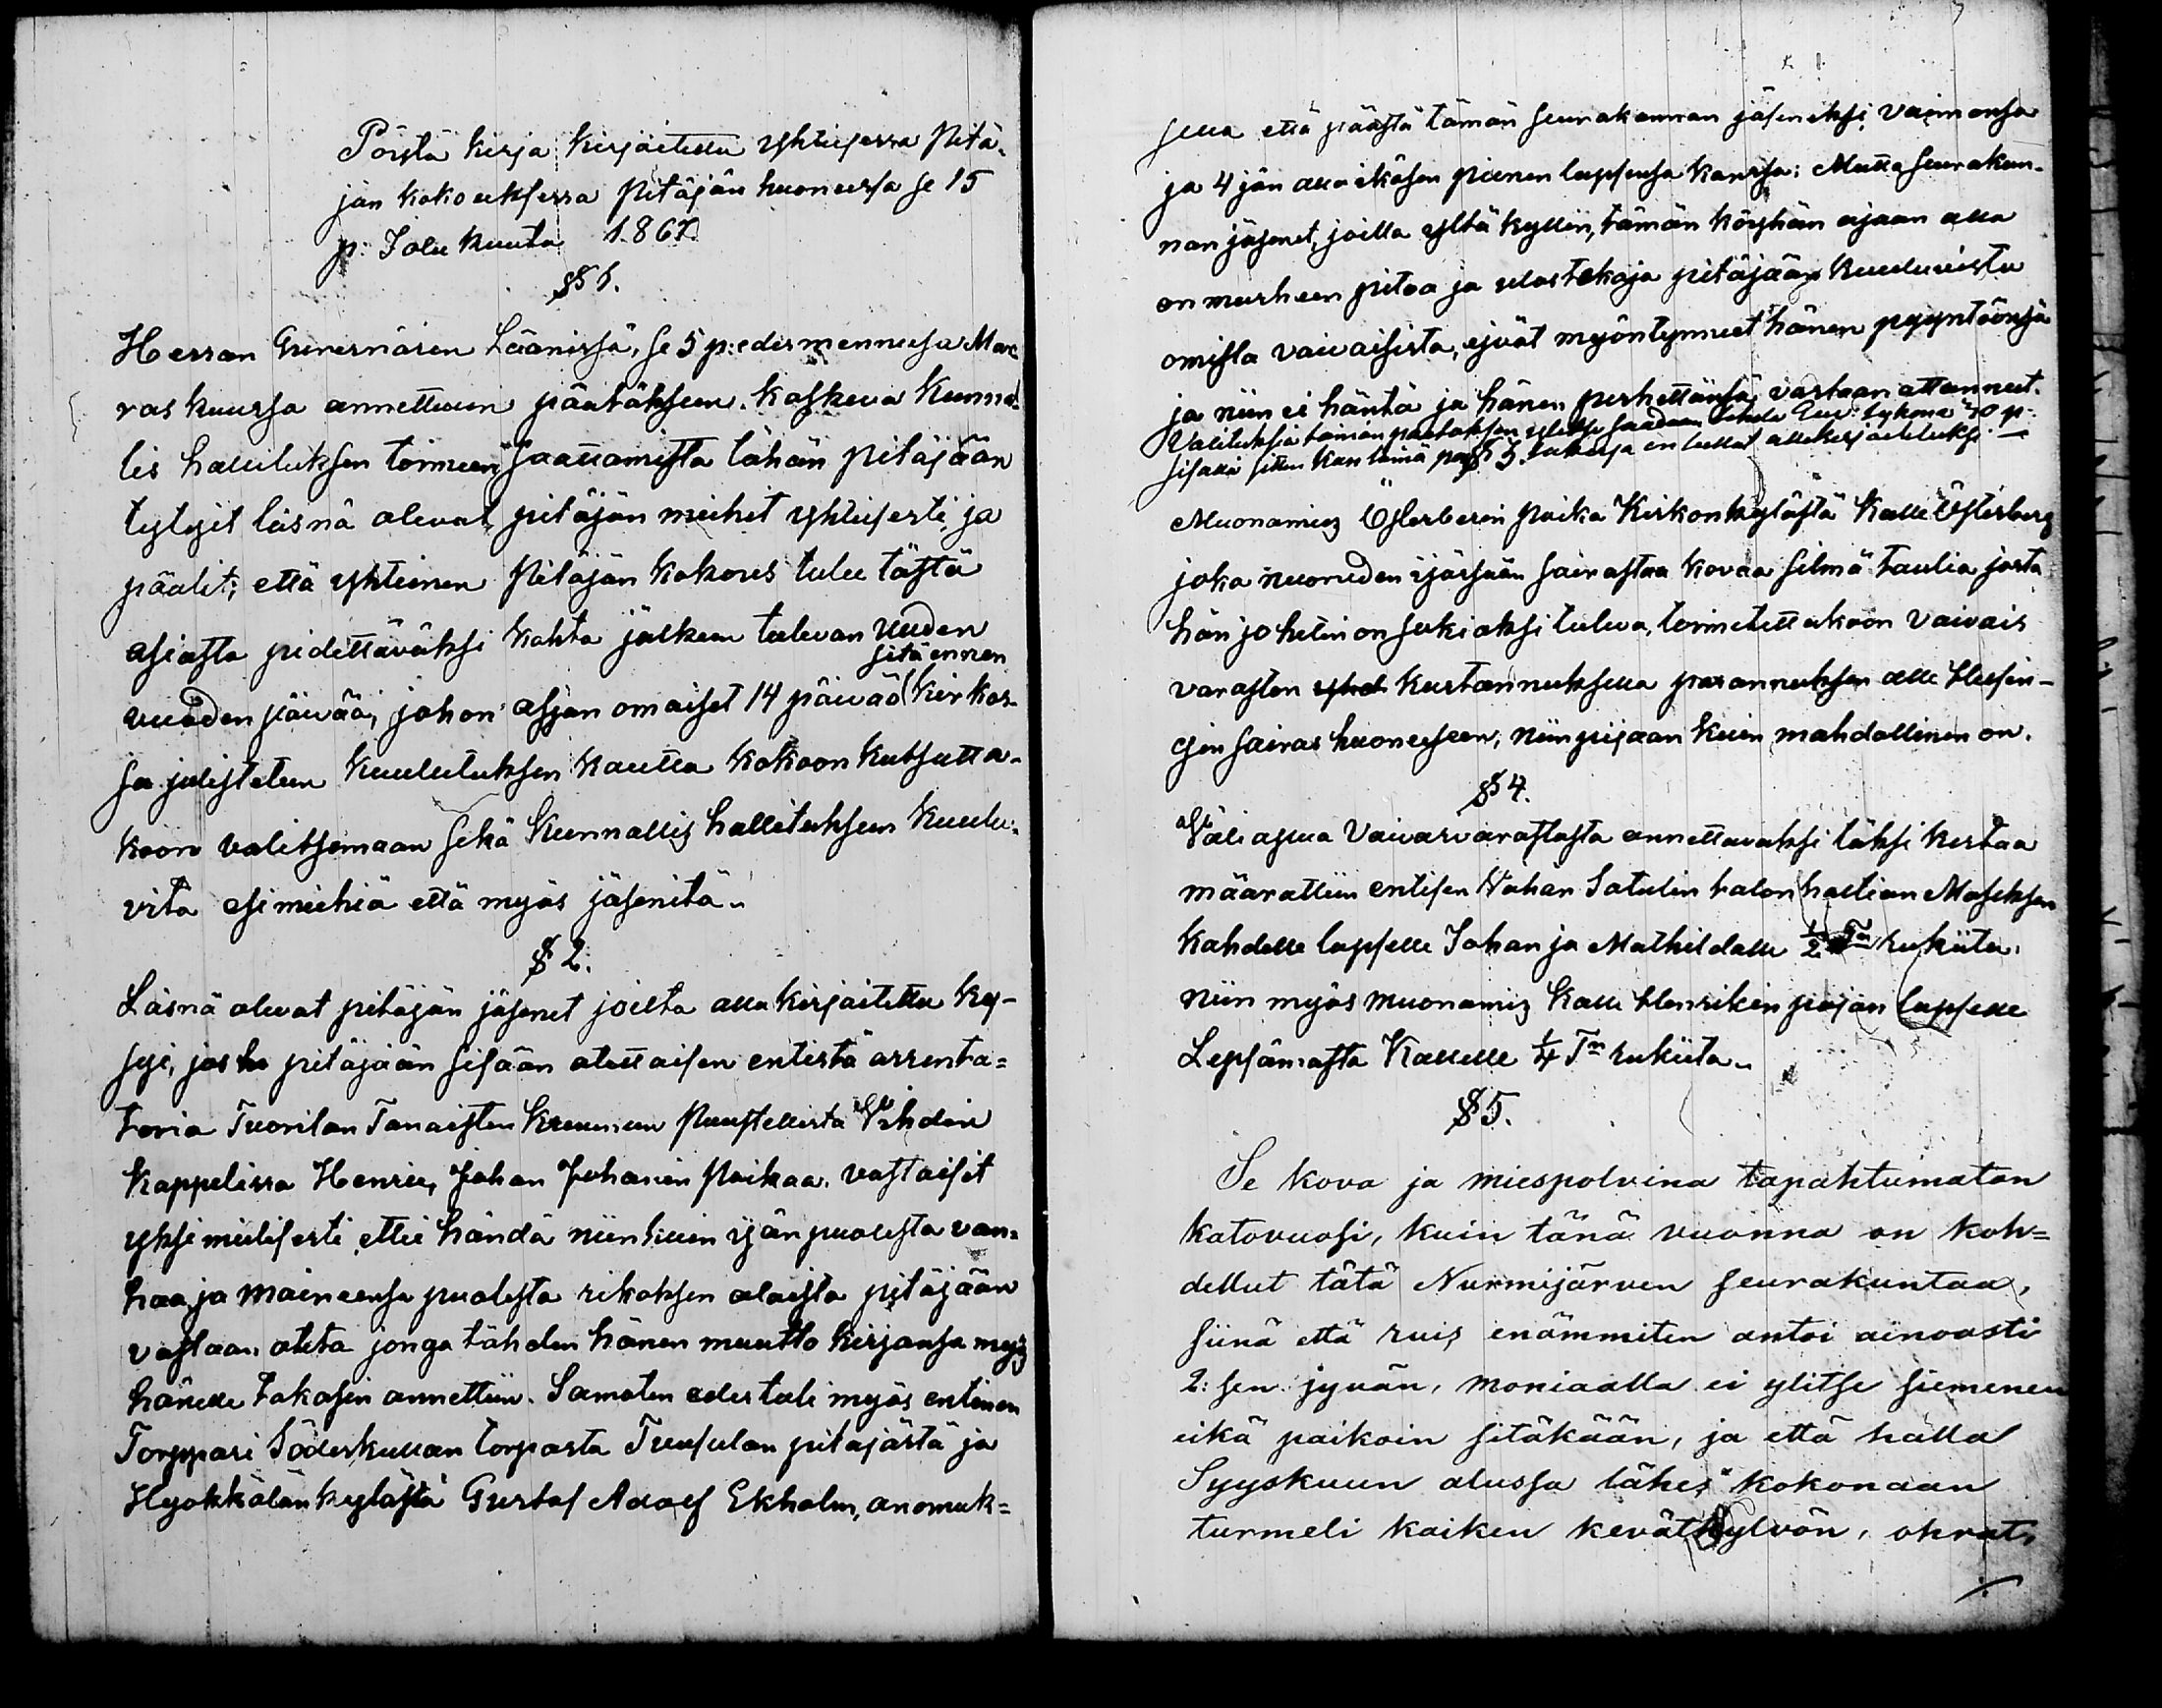 Pöytä kirja kirjåitettu yhteisessa Pitä-
jän kokouksessa Pitäjän huoneessa se 15
p: Jolu kuuta 1867.
§ 1.
Herran Guvernörin Läänissä, se 5 p: edesmennessä Mar-
ras kuussa annettuun päätökseen, koskeva kunnal-
lis hallituksen toimeen saattamista tähän pitäjään
tytyit läsnä olevat pitäjän miehet yhteisesti ja
päätit; että yhteinen Pitäjän kokous tulee tästä
asiasta pidettäväksi kohta jälkeen tulevan uuden
vuoden päivää, johon asjan omaiset 14 päivää sitä ennen kirkos-
sa julistetun kuulutuksen kautta kokoon kutsutta-
koon valitsemaan sekä kunnallis hallituksen kuulu-
vita esimiehiä että myös jäsenitä.
§ 2.
Läsnä olevat pitäjän jäsenet joilta alla kirjåitettu ky-
syi, jos he pitäjään sisään otettaisen entistä arrenta=
toria Tuorilan Tanaisten kruunun Puustellista Vihdin
kappelissa Henric Johan Johanin Poikaa. vastaisit
yksimielisesti ettei händä niinkuin ijän puolesta van-
haa ja maineensa puolesta rikoksen alaista pitäjään
vastaan oteta jonga tähden hänen muutto kirjansa myös
hänelle takasin annettiin. Samaten edes tuli myös entinen
Torppari Söderkullan torpasta Tuusulan pitäjästä ja
Hyökkälän kylästä Gustaf Adolf Ekholm, anomuk=
sella että päästä tämän seurakunnan jäseneksi vaimonsa
ja 4 jän alla ikäsen pienen lapsensa kanssa: Mutta seurakun-
nan jäsenet, joilla yltä kyllin, tämän köyhän ajaan alla
on murheen pitoa ja ulostekoja pitäjään kuuluvista
omista vaivaisista, ejvät myöntynneet hänen pyyntöönsä
ja niin ei häntä ja hänen perhettänsä vastaan ottanneet.
Valituksia tämän päätöksen ylitse saadaan tehdä Guv: tykönä 30 p:
sisällä sitten kun tämä § 3. tullut allekirjoitetuksi.
Muonamies Österberin poika Kirkonkylästä Kalle Österberg
joka nuoruden ijässään sairastaa kovaa silmä taulia josta
hän jo heti on sokiaksi tuleva, toimitettakoon vaivais
varasten kustannuksella parannuksen alle Helsin-
gin sairas huoneeseen, niin pijaan kuin mahdollinen on.
§ 4.
Väli apua Vaivasvarastosta annettavaksi täksi kertaa
määrattiin entisen Nahan Satulin talon haltian Matseksen
kahdelle lapselle Johan ja Mathildalle ½ Tn rukiita.
niin myös muonamies Kalle Henrikin pojan lapselle
Lepsämästa Kallelle ¼ Tn rukiita.
§ 5.
Se kova ja miespolvina tapahtumatan
katovuosi, kuin tänä vuonna on koh=
dellut tätä Nurmijärven seurakuntaa,
siinä että ruis enämmiten antoi ainoasti
2:sen jyvän, moniaalla ei ylitse siemenen
eikä paikoin sitäkään, ja että hålla
Syyskuun alussa lähes kokonaan
turmeli kaiken kevätkylvön, ohrat,